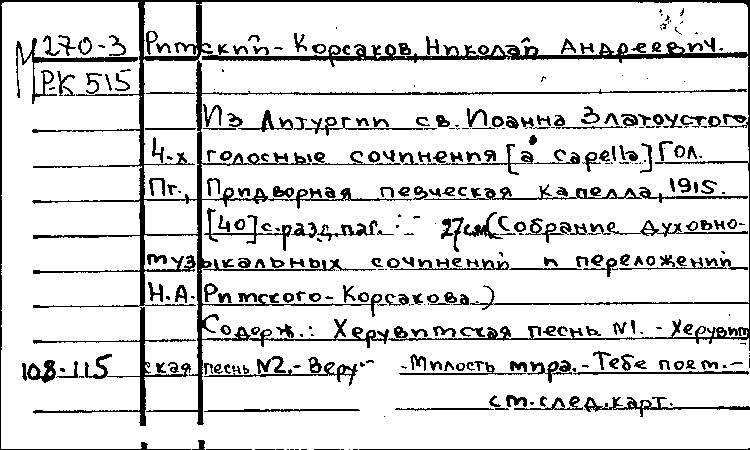 М 270-3 Римский-Корсаков, Николай Андреевич.
Р-К 515
Из Литургии св. Иоанна Златоустого
4-х голосные сочинения [a capella] Гол.
Пг., Придворная певческая капелла, 1915.
[40] с. разд. паг. 27см. (Собрание духовно-
музыкальных сочинений и переложений
Н.А. Римского-Корсакова.)
Содерж.: Херувимская песнь №1. - Херувим
108-115 ская песнь №2. - Верую - Милость мира. - Тебе поем. -
см. след. карт.